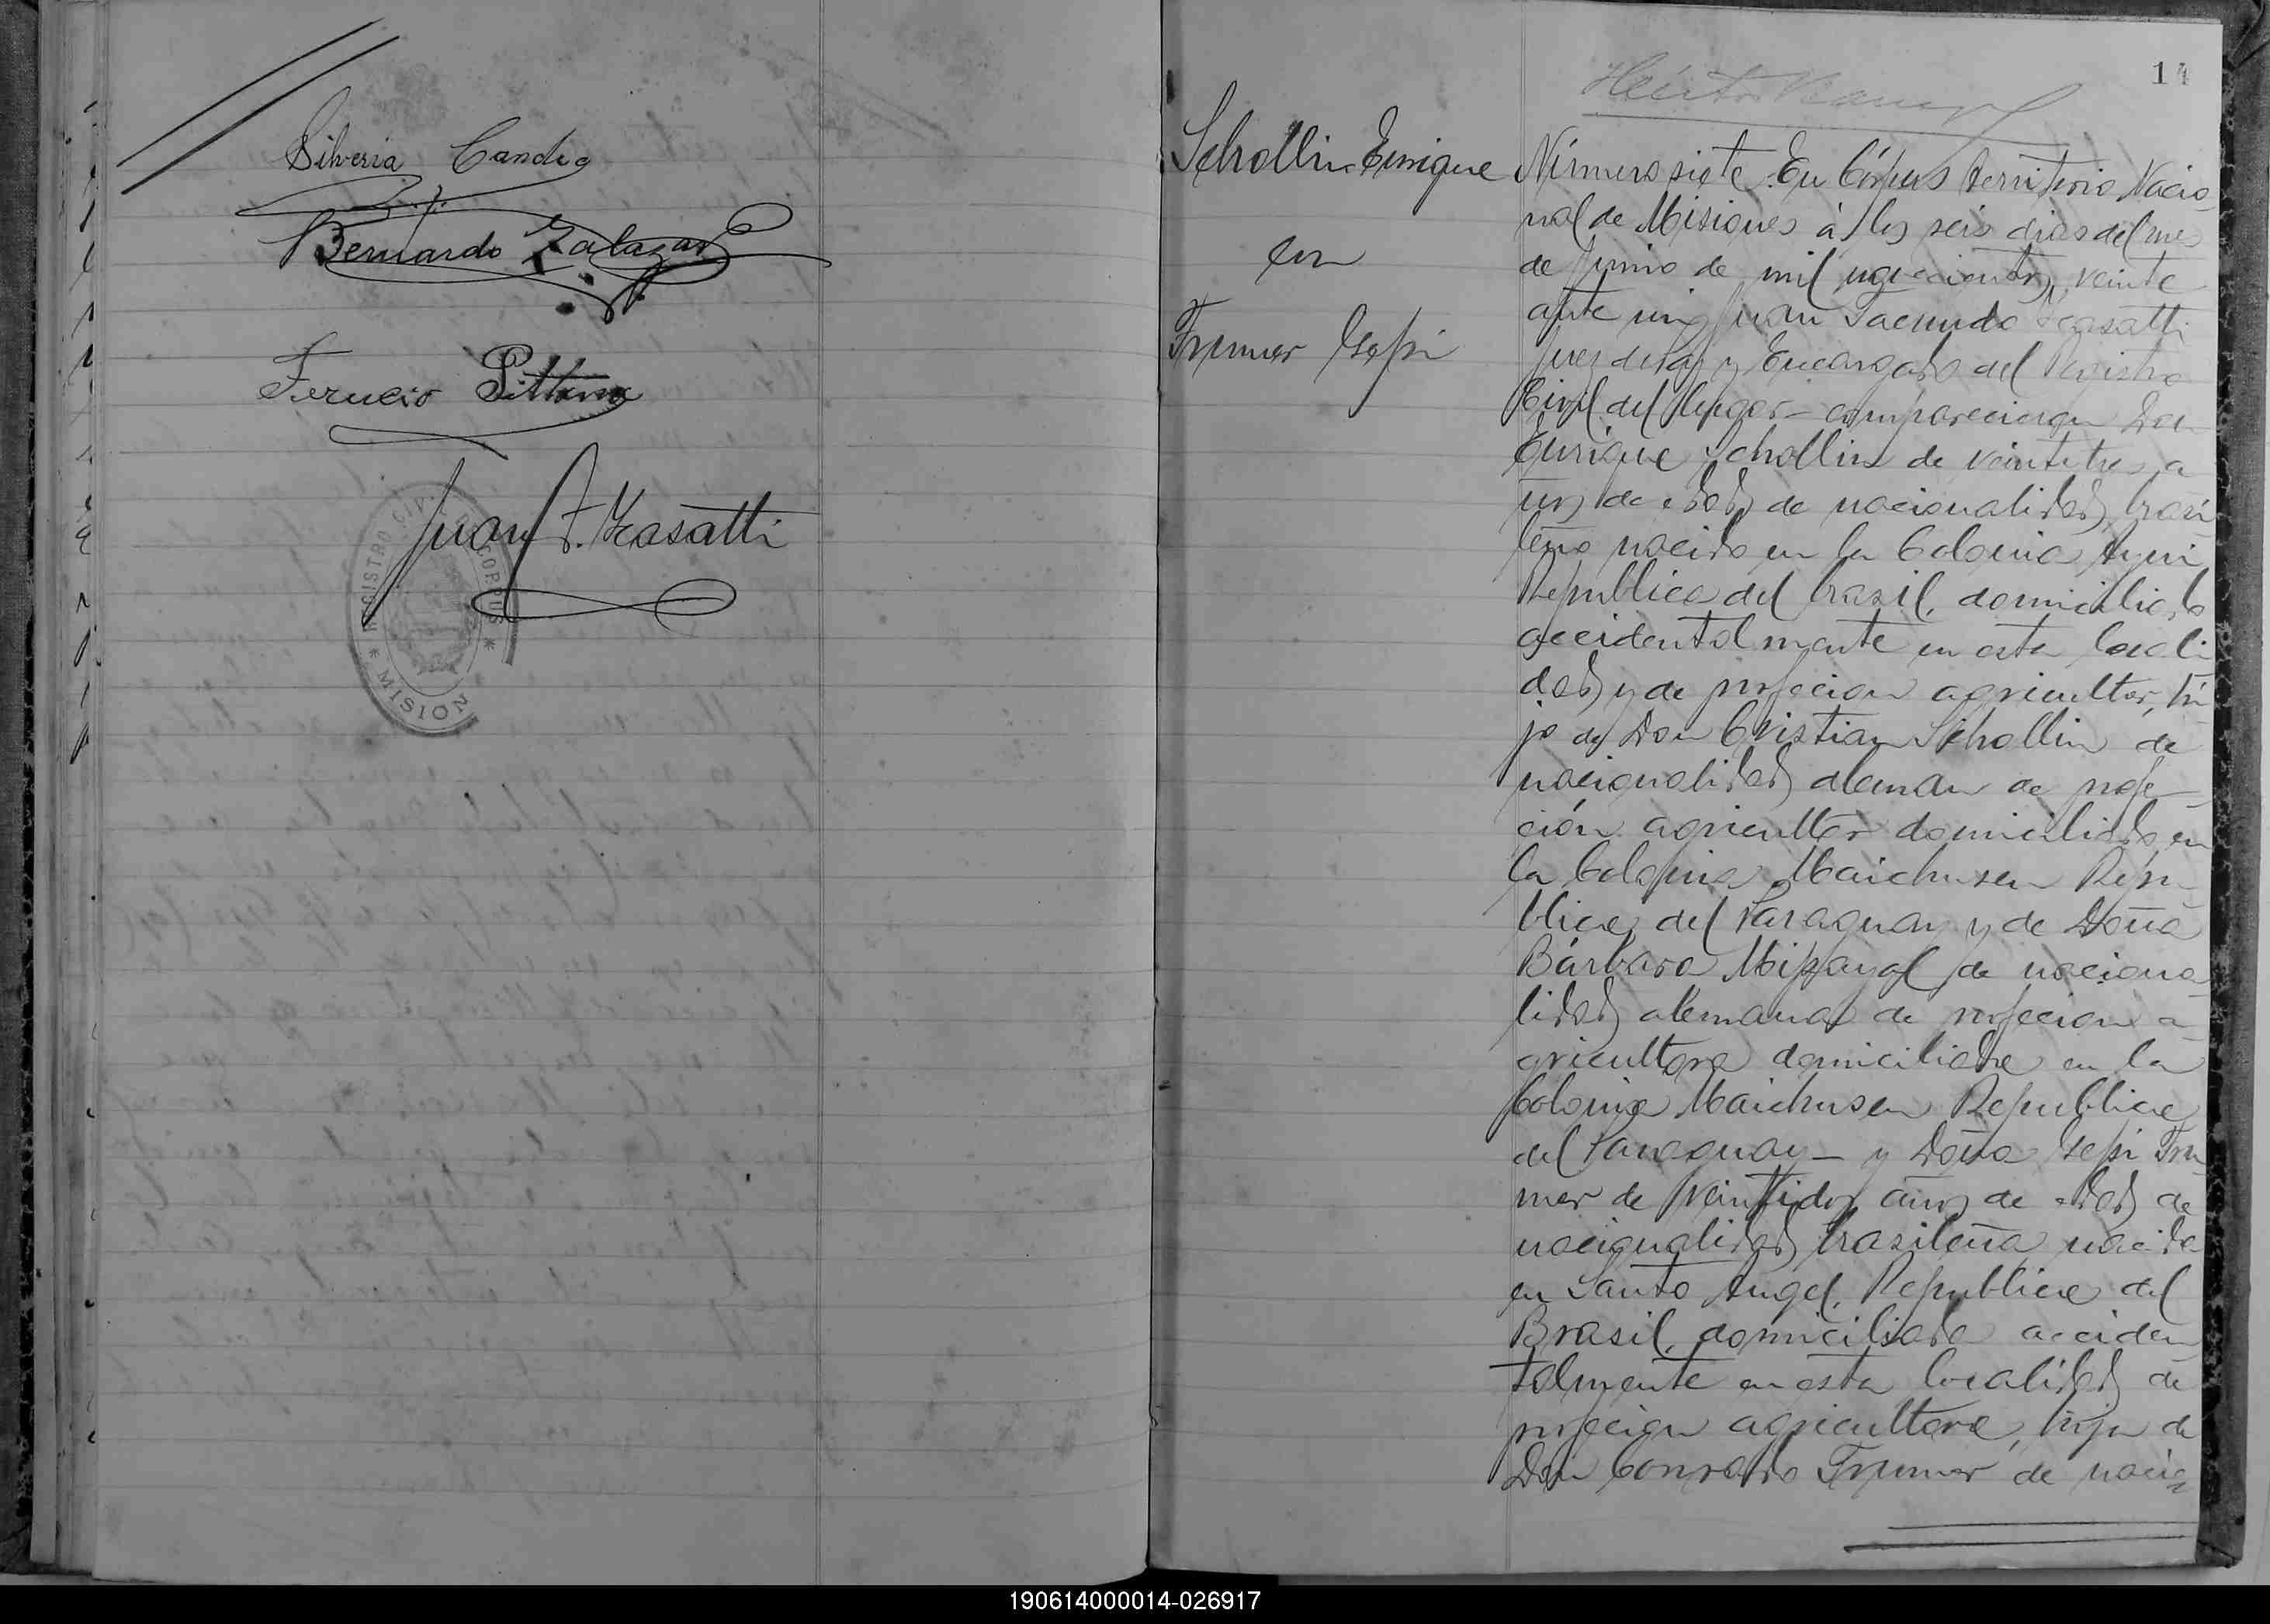 Silveria Candia
Bernardo Zalazar
Ferucio Pittana
Juan F. Casatti
REGISTRO CIVIL CORPUS
* MISION
14
Héctor
Schollin Enrique
con
Trumer Gepi
Número siete. En Córpus territorio Nacio
nal de Misiones á los seis dias del mes
de Junio de mil novecientos veinte
ante mi Juan Facundo Casatti
Juez de Paz y Encargado del Registro
Civil del lugar – comparecieron Don
Enrique Schollin de veintitres a
ños de edad de nacionalidad brasi
leño nacido en la Colonia Ayui
Republica del brasil, domiciliado
accidentalmente en esta locali
dad y de profecion agricultor, hi
jo de Don Cristian Schollin de
nacionalidad aleman de profe
ción agricultor domiciliado en
la Colonia Maichusen Repu
blica del Paraguay y de Doña
Bárbara de naciona
lidad alemana de profecion a
gricultora domiciliada en la
Colonia Maichusen Republica
del Paraguay – y Doña Gepi Tru
mer de veintidos años de edad de
nacionalidad brasileña nacida
en Santo Angel, Republica del
Brasil, domiciliada acciden
talmente en esta localidad de
profecion agricultora, hija de
Don Conrado Trumer de nacio
190614000014-026917